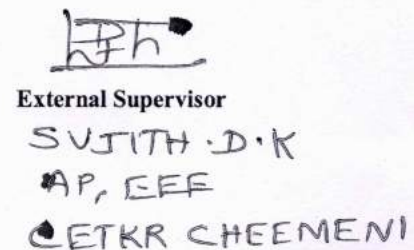 External Supervisor
SUJITH .D.K
AP, EEE
CETKR CHEEMENI